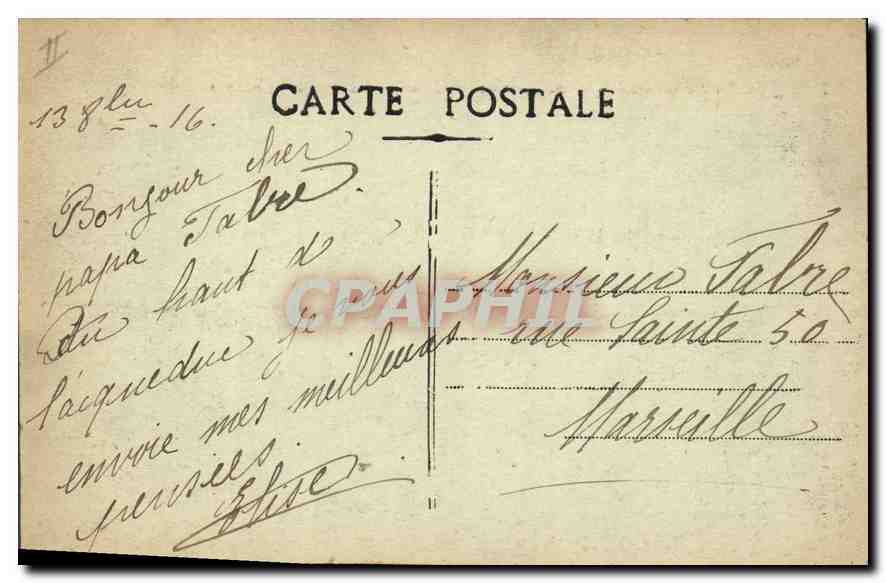 II
CARTE POSTALE
13 8bre - 16.
Bonjour cher
papa Fabre.
Du haut de
l'acqueduc je vous
envoie mes meilleures
pensées.
Elise
Monsieur Fabre
rue Sainte 50
Marseille
CPAPHIL